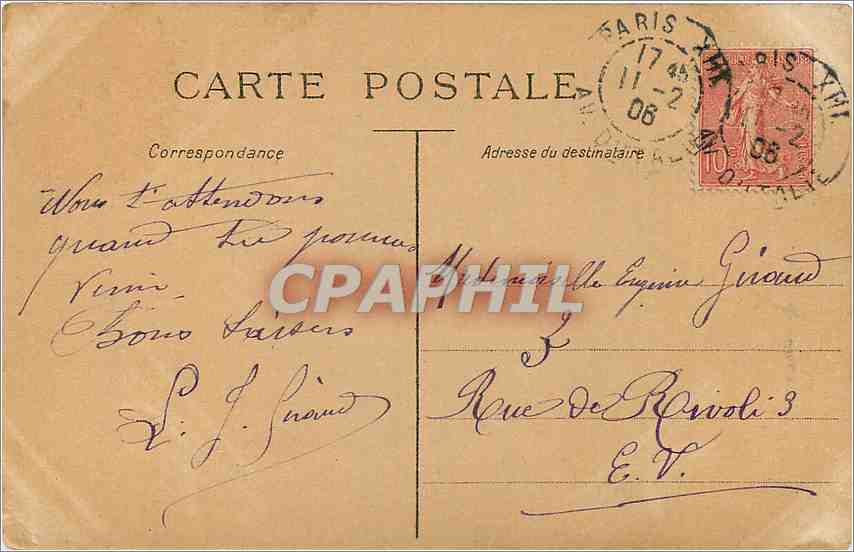 CARTE POSTALE
Correspondance
Nous t'attendons
quand tu pourras
venir.
Bons baisers
L. J. Giraud
Adresse du destinataire
Mademoiselle Eugénie Giraud
3
Rue de Rivoli 3
E.V.
PARIS XIII
17 45
11 -2
06
AV. D'ITALIE
PARIS XIII
11 -2
06
AV. D'ITALIE
10c
CPAPHIL